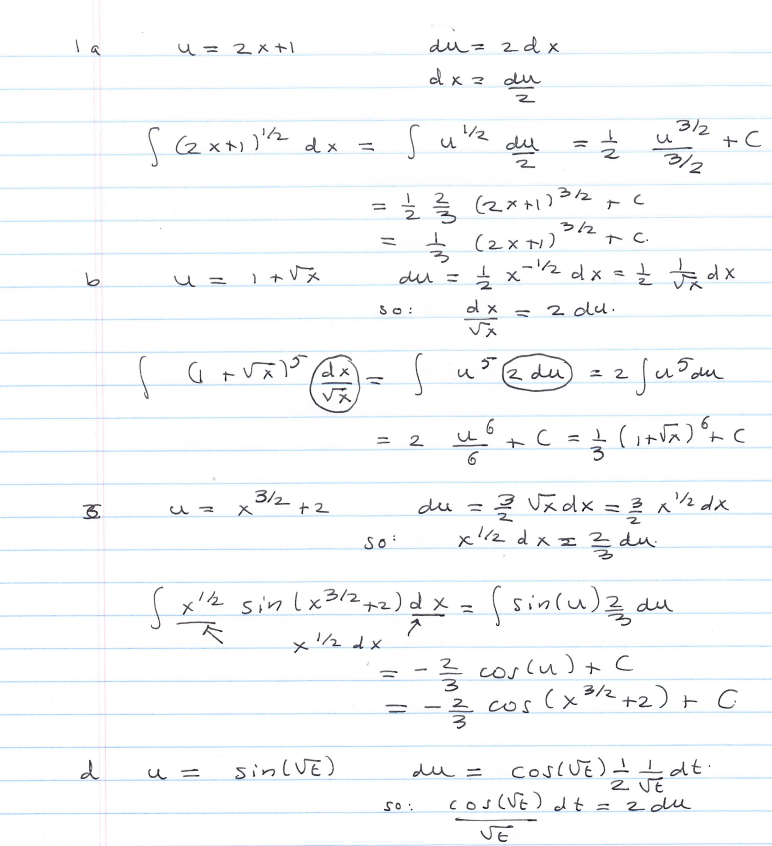 1a u = 2x+1 du = 2dx
dx = du/2
∫ (2x+1)^1/2 dx = ∫ u^1/2 du/2 = 1/2 u^3/2 / 3/2 + C
= 1/2 2/3 (2x+1)^3/2 + C
= 1/3 (2x+1)^3/2 + C.
b u = 1+√x du = 1/2 x^-1/2 dx = 1/2 1/√x dx
so: dx/√x = 2 du.
∫ (1+√x)^5 dx/√x = ∫ u^5 2 du = 2 ∫ u^5 du
= 2 u^6/6 + C = 1/3 (1+√x)^6 + C
u = x^3/2 + 2 du = 3/2 √x dx = 3/2 x^1/2 dx
so: x^1/2 dx = 2/3 du.
∫ x^1/2 sin(x^3/2+2) dx = ∫ sin(u) 2/3 du
x^1/2 dx
= - 2/3 cos(u) + C
= - 2/3 cos(x^3/2+2) + C
d u = sin(√t) du = cos(√t) 1/2 1/√t dt.
so: cos(√t)/√t dt = 2 du